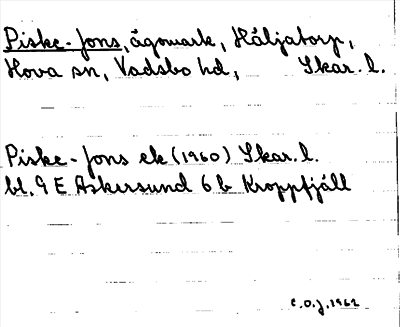 Piske-Jons, ägomark, Håljatorp,
Hova sn, Vadsbo hd, Skar. l.
Piske-Jons ek (1960) Skar. l.
bl. 9 E Askersund 6 b Kroppfjäll
C.O.J. 1962